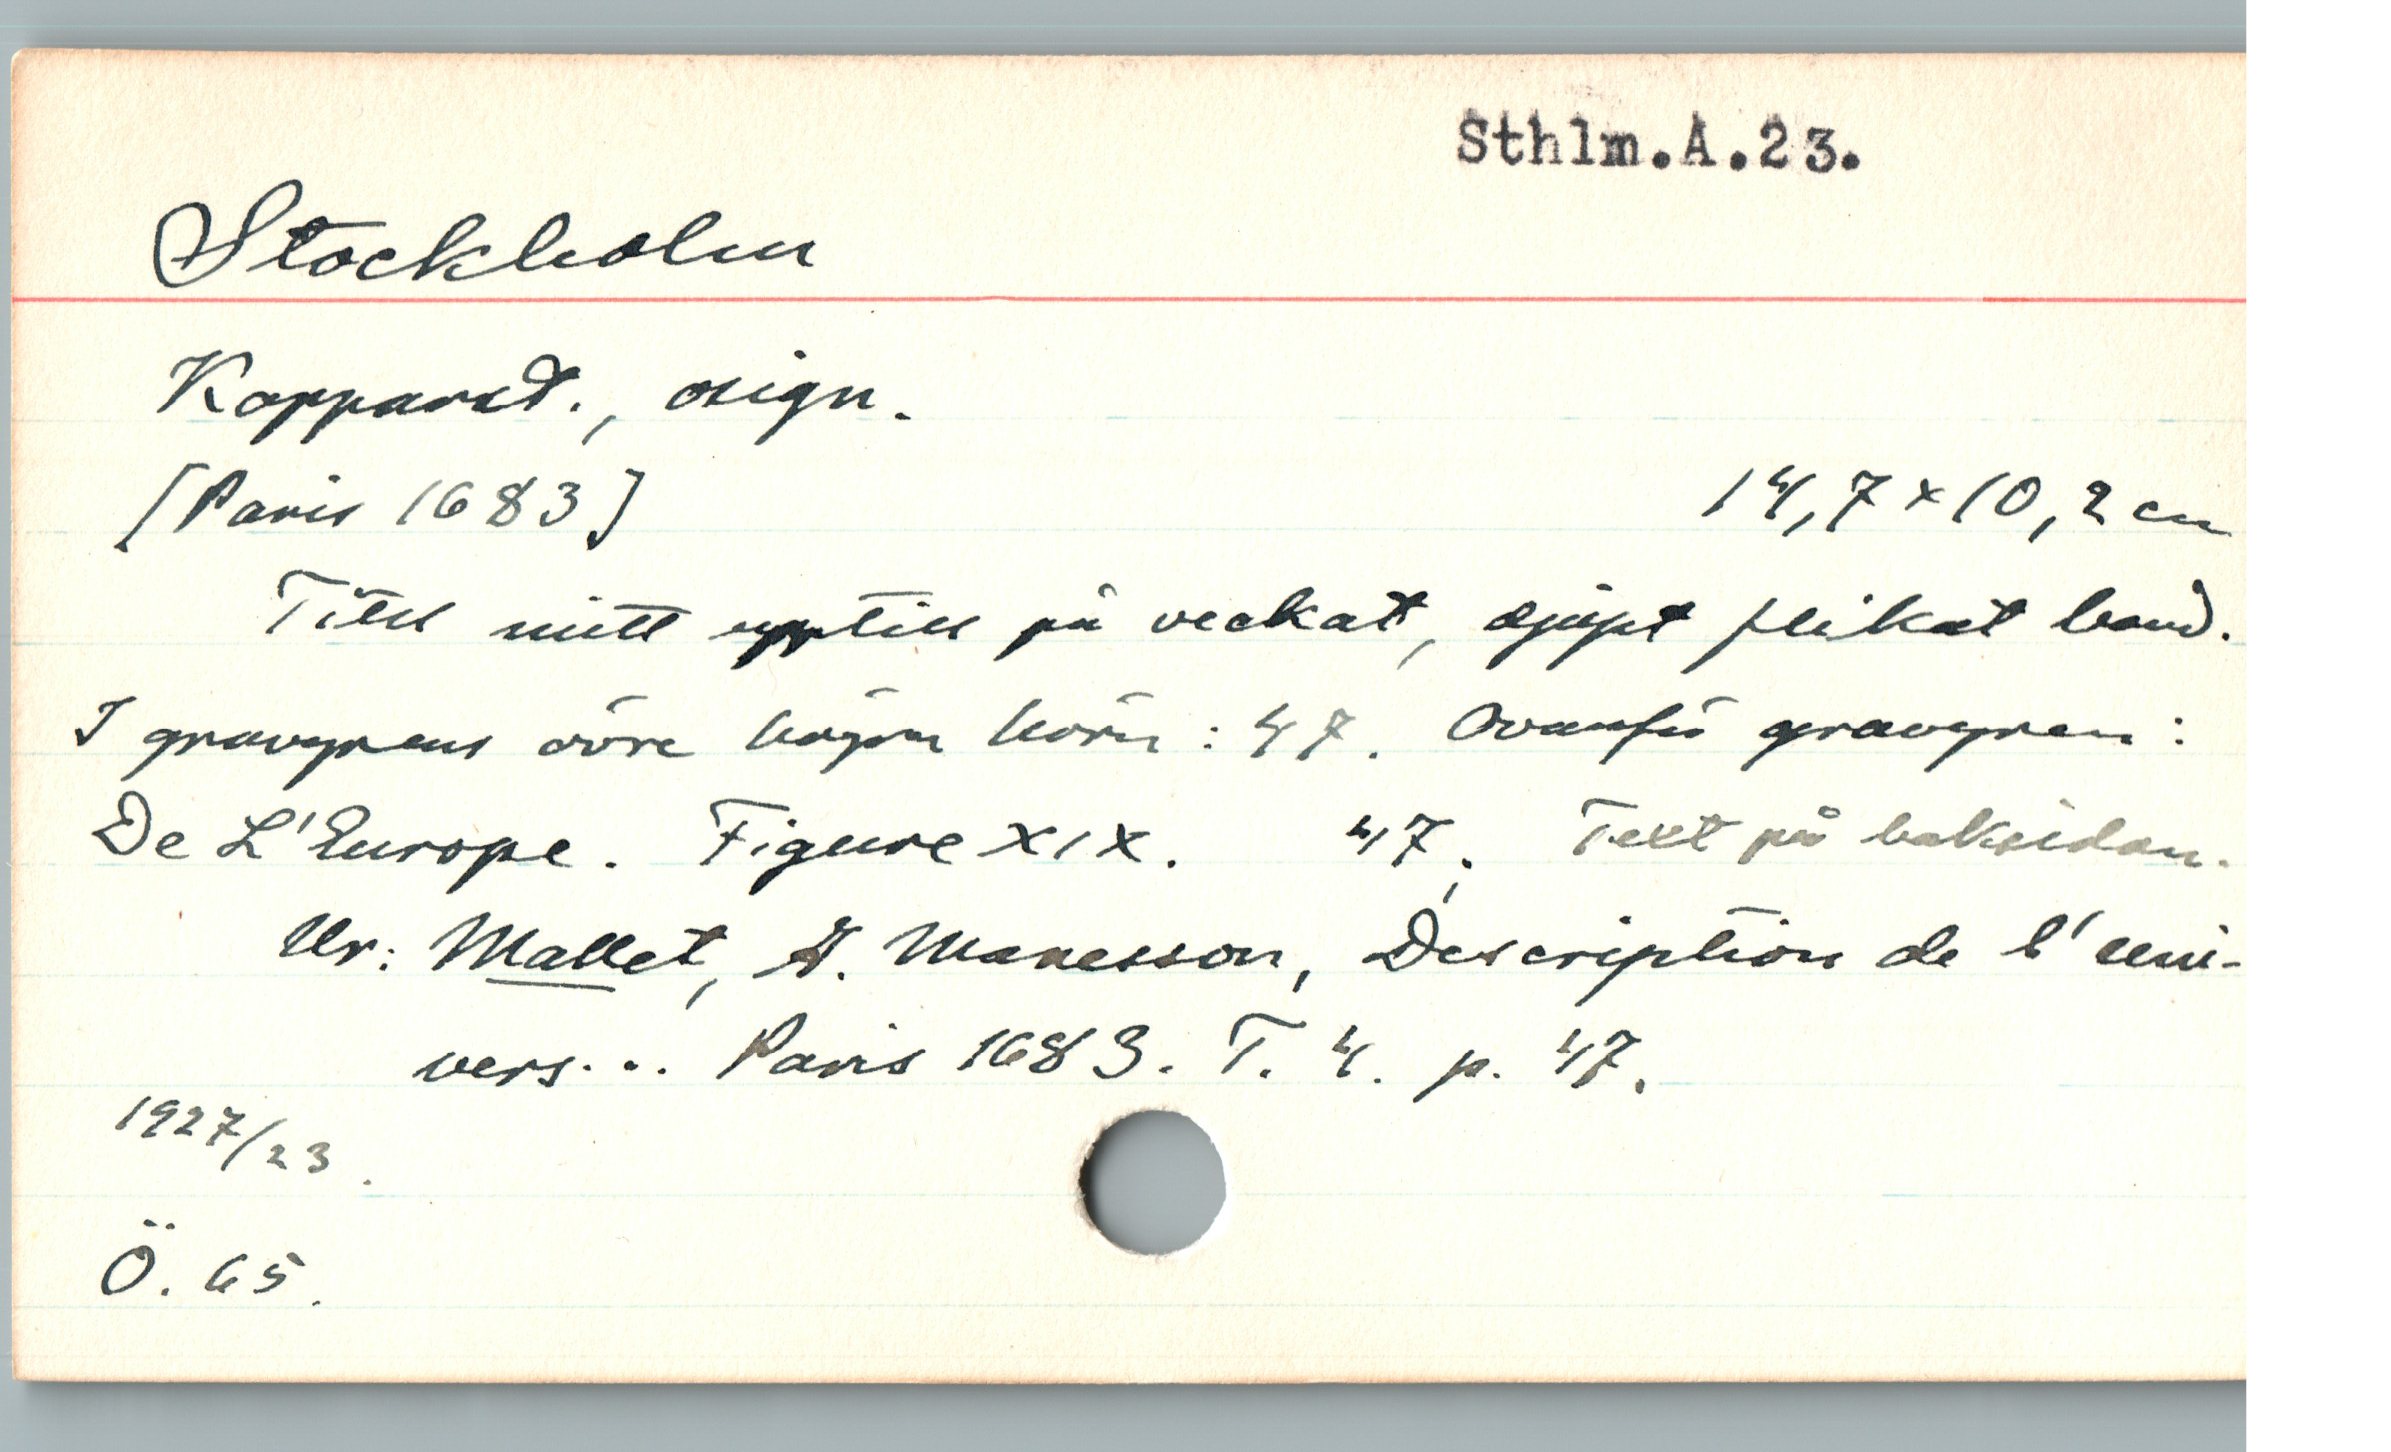 Sthlm.A.23.
Stockholm
Kopparst., osign.
[Paris 1683] 14,7 x 10,2 cm
Titel mitt upptill på veckat, djupt flikat band.
I gravyrens övre högra hörn: 47. Ovanför gravyren:
De L'Europe. Figure XIX. 47. Text på baksidan.
Ur: Mallet, A. Manesson, Description de l'uni-
vers... Paris 1683. T. 4. p. 47.
1927/23.
Ö. 65.